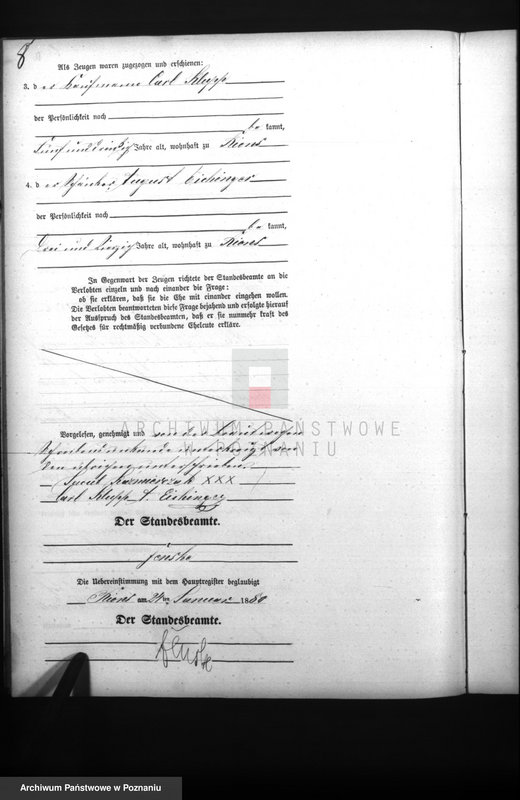 8
Als Zeugen waren zugezogen und erschienen:
3. der Kaufmann Carl Klupp
der Persönlichkeit nach
be kannt,
fünf und dreißig Jahre alt, wohnhaft zu
4. der August Eichinger
der Persönlichkeit nach
be kannt,
drei und Jahre alt, wohnhaft zu
In Gegenwart der Zeugen richtete der Standesbeamte an die
Verlobten einzeln und nach einander die Frage:
ob sie erklären, daß sie die Ehe mit einander eingehen wollen.
Die Verlobten beantworteten diese Frage bejahend und erfolgte hierauf
der Ausspruch des Standesbeamten, daß er sie nunmehr kraft des
Gesetzes für rechtmäßig verbundene Eheleute erkläre.
ARCHIWUM PAŃSTWOWE
W POZNANIU
Vorgelesen, genehmigt und von der
den übrigen unterschrieben.
Kazmierczak XXX
Carl Klupp A. Eichinger
Der Standesbeamte.
Die Uebereinstimmung mit dem Hauptregister beglaubigt
am 24ten Januar 1880
Der Standesbeamte.
Archiwum Państwowe w Poznaniu